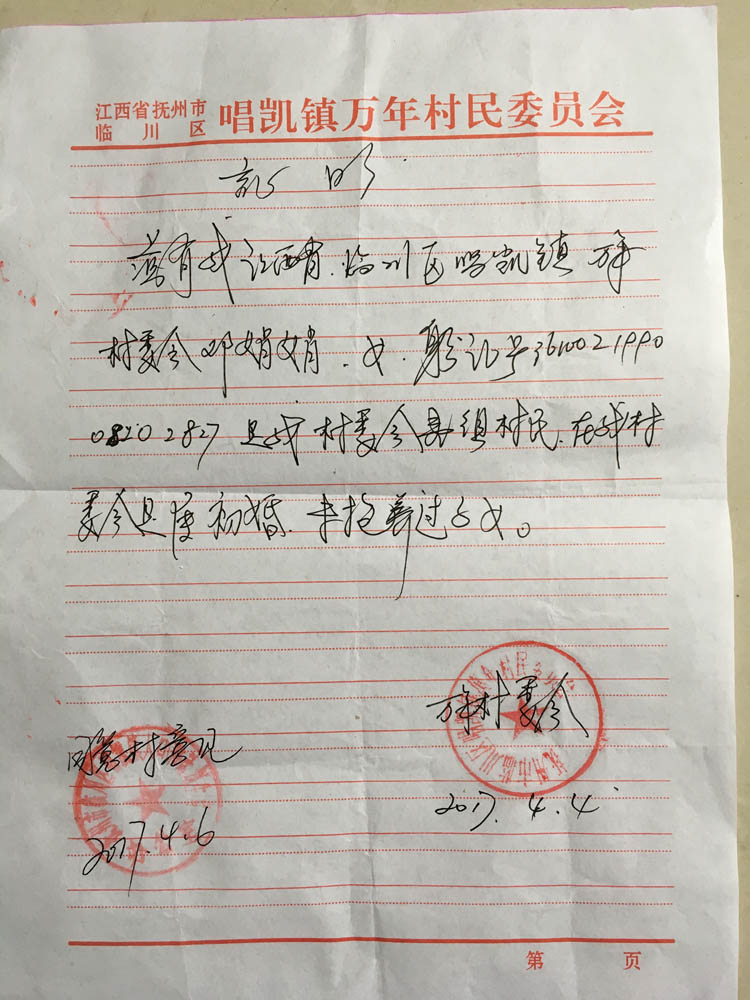 江西省抚州市
临川区
唱凯镇万年村民委员会
证 明
兹有我江西省.临川区唱凯镇万年
村委会邓娟娟.女.身份证号3610021990
08202827是我村委会 组村民.在我村
委会是属初婚.未抱养过子女。
万年村委会
2017.4.4
同意村意见
2017.4.6
第 页